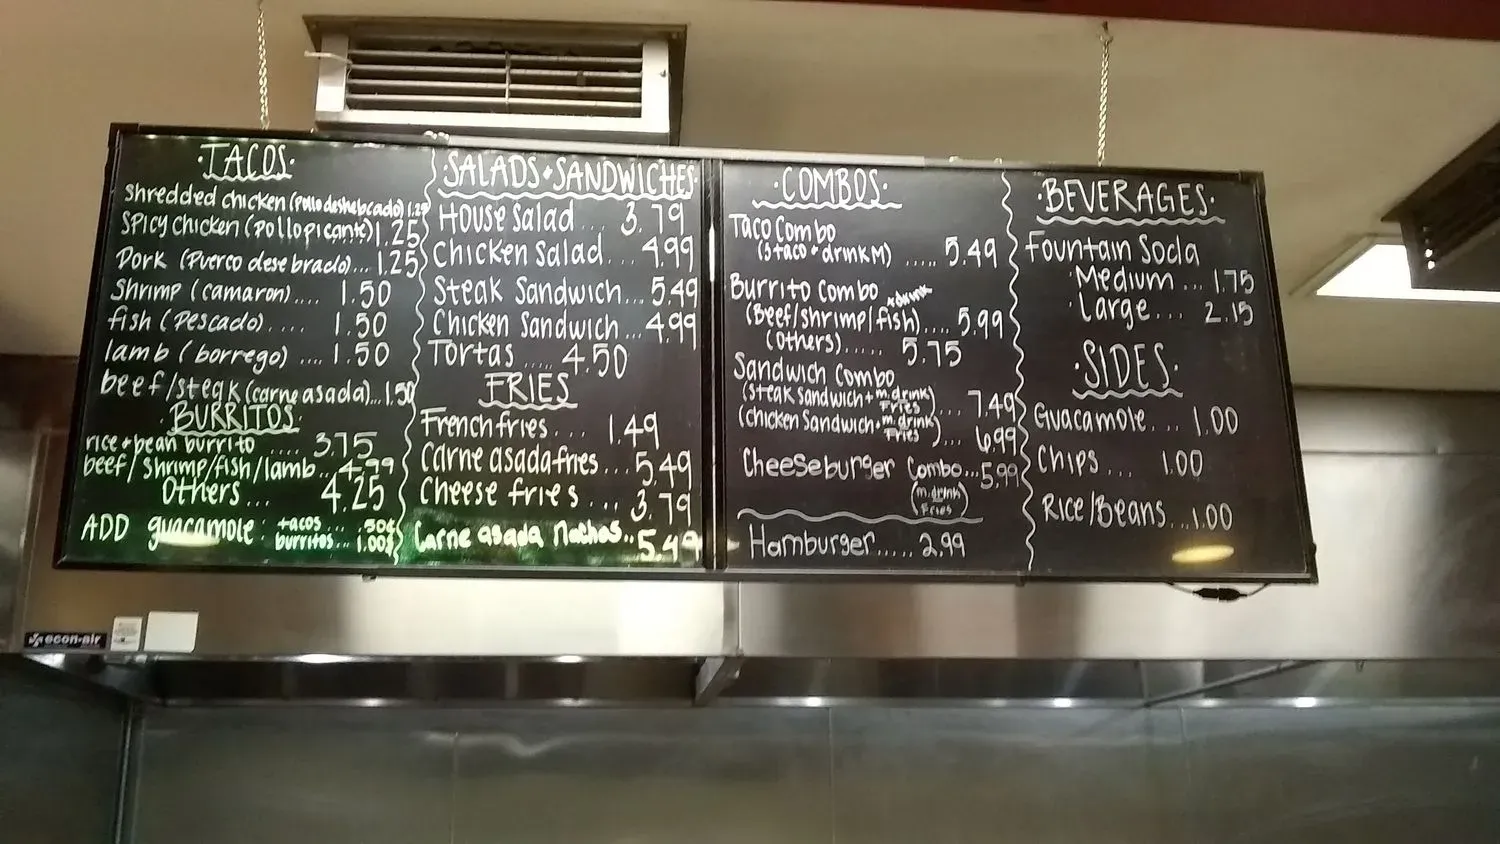 TACOS
Shredded chicken (pollo deshebrado) 1.25
Spicy chicken (pollo picante) 1.25
Pork (Puerco desebrado)... 1.25
Shrimp (camaron).... 1.50
fish (Pescado).... 1.50
lamb (borrego) .... 1.50
beef/steak (carne asada)... 1.50
BURRITOS
rice + bean burrito .... 3.75
beef/shrimp/fish/lamb.. 4.99
Others... 4.25
ADD guacamole: tacos... .50¢
burritos... 1.00$
SALADS • SANDWICHES
House Salad ... 3.79
Chicken Salad... 4.99
Steak Sandwich... 5.49
Chicken Sandwich... 4.99
Tortas ..... 4.50
FRIES
French fries .... 1.49
Carne asada fries... 5.49
Cheese fries .... 3.79
Carne asada Nachos.. 5.49
COMBOS
Taco Combo
(3 taco + drink M) ..... 5.49
Burrito Combo
+ drink
(Beef/shrimp/fish).... 5.99
(others)..... 5.75
Sandwich Combo
(Steak Sandwich + m. drink Fries)... 7.49
(chicken Sandwich + m. drink Fries)... 6.99
Cheeseburger Combo... 5.99
(m. drink Fries)
Hamburger..... 2.99
BEVERAGES
Fountain Soda
Medium ... 1.75
Large... 2.15
SIDES
Guacamole... 1.00
Chips... 1.00
Rice/Beans...1.00
econ-air